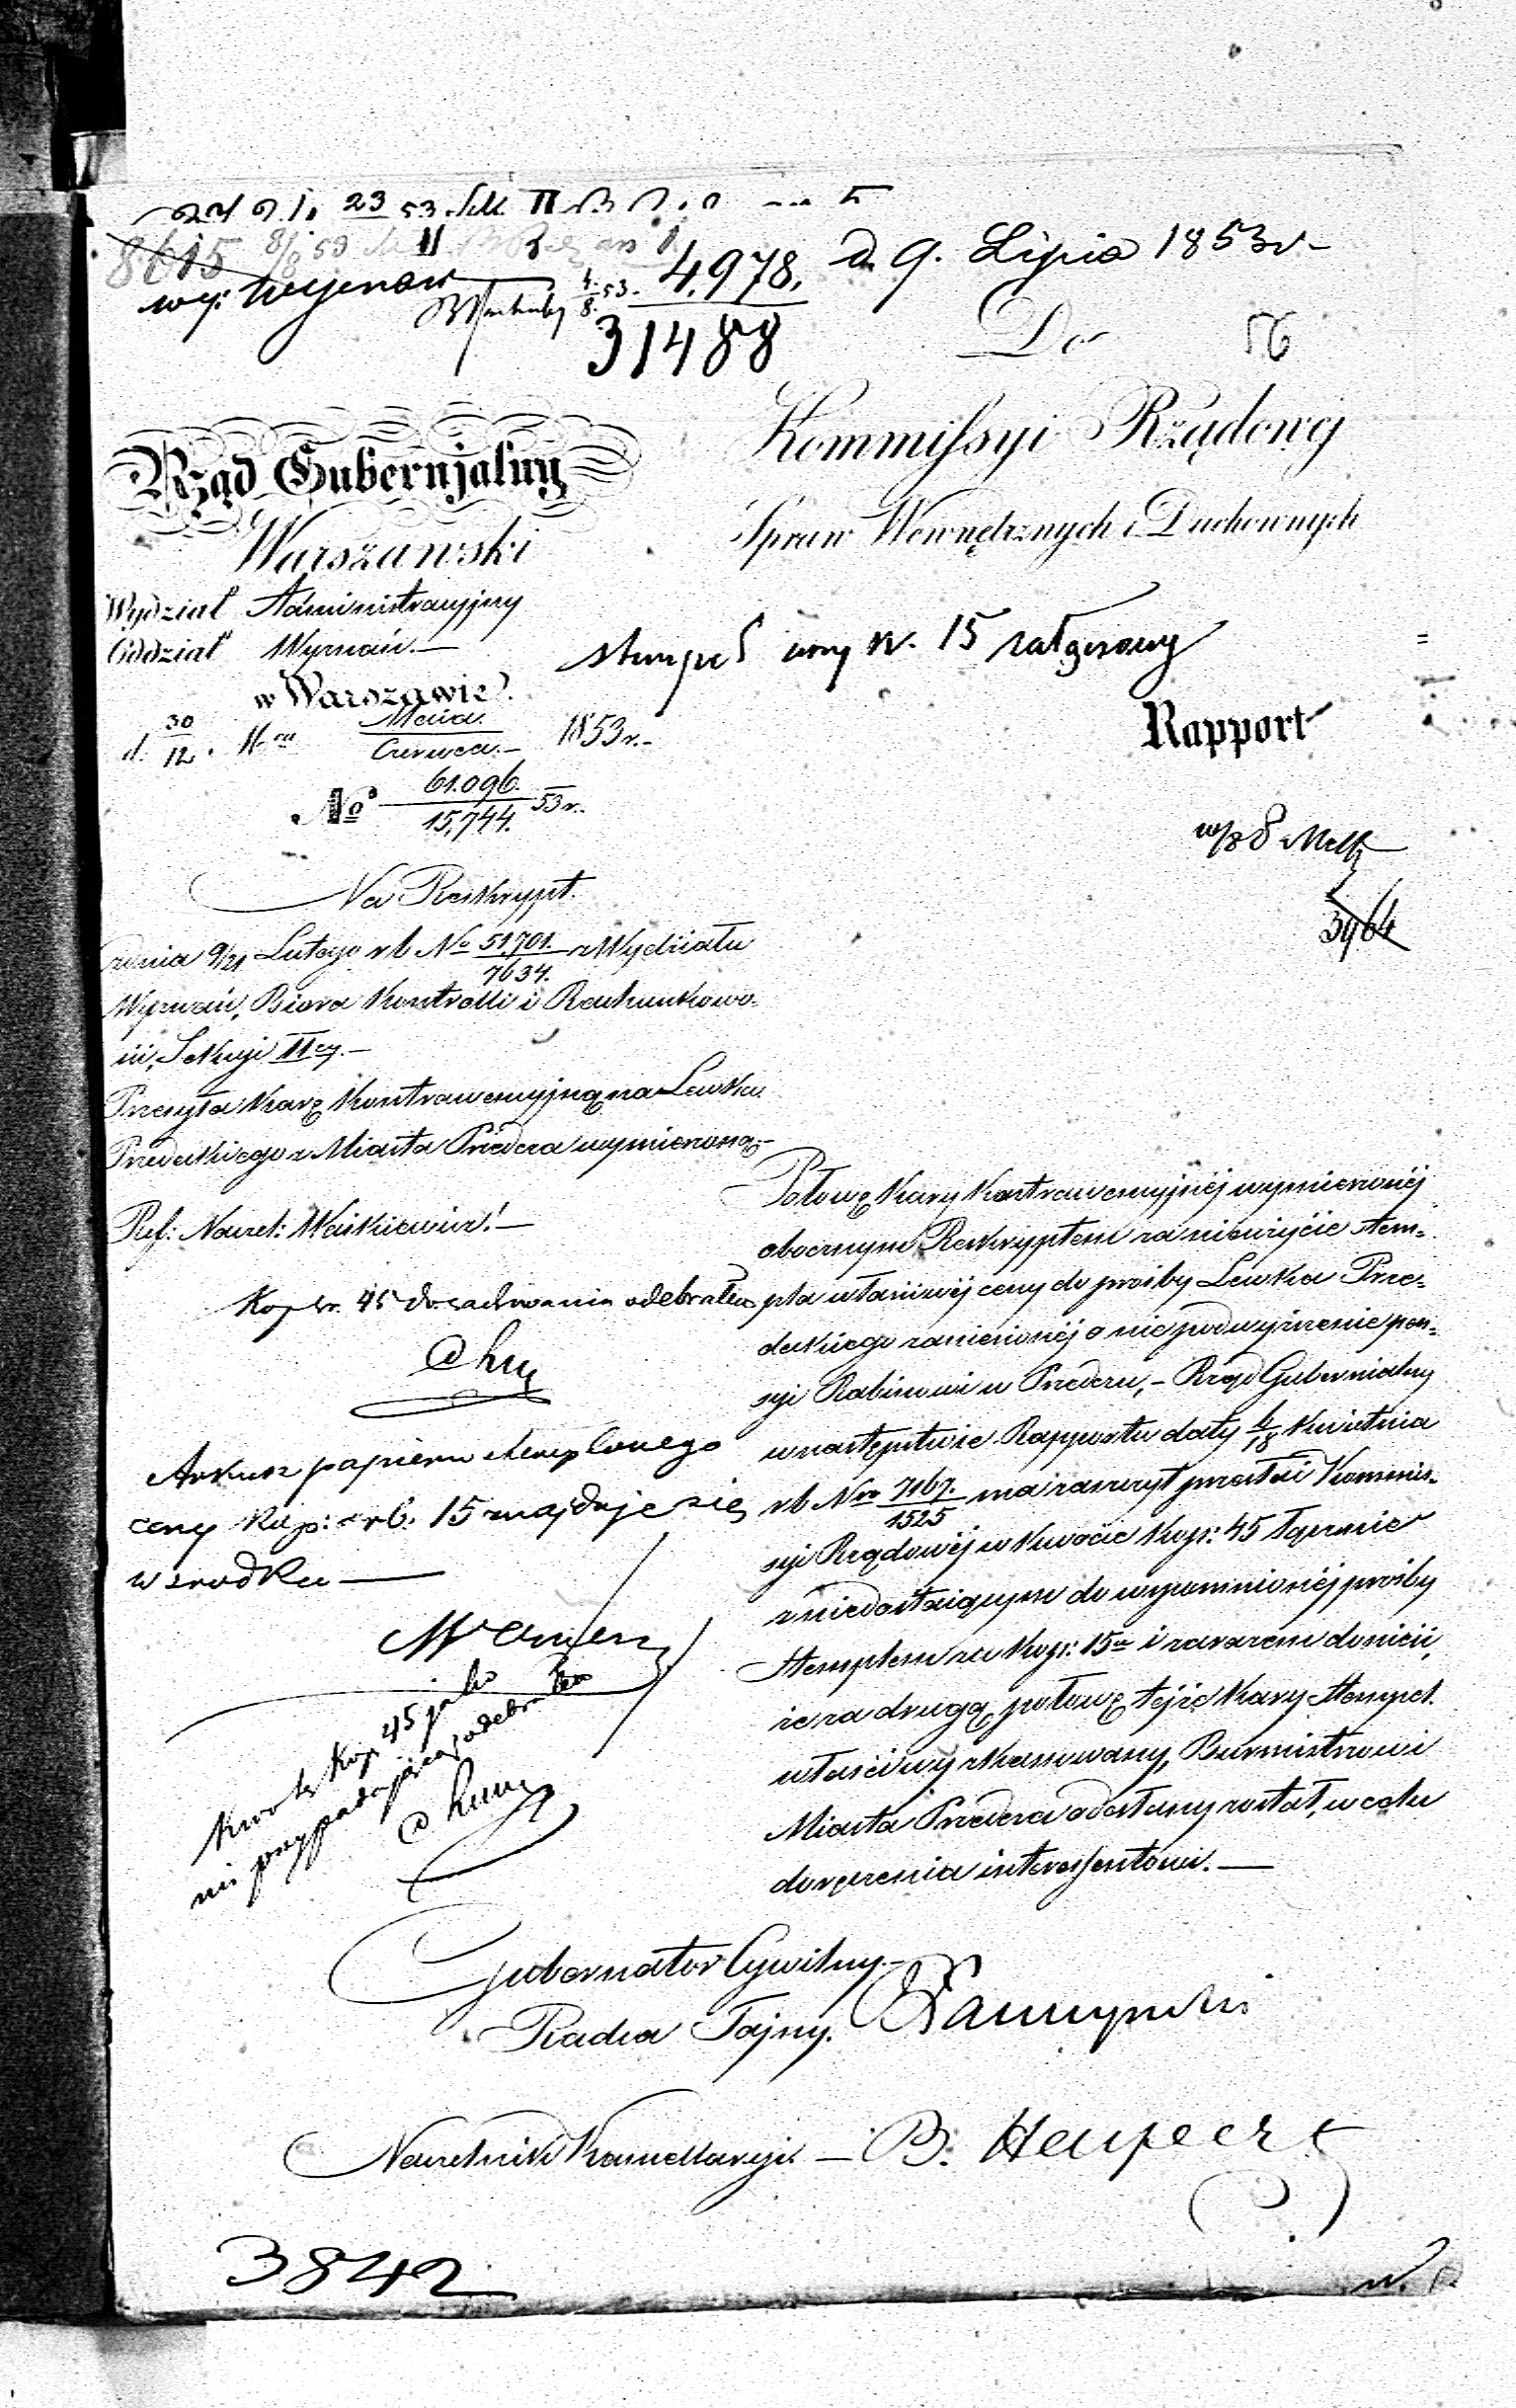 8615
4978. d. 9. Lipca 1853 r.
31488
Do
56
Kommissyi Rządowej
Spraw Wewnętrznych i Duchownych
Rząd Gubernjalny
Warszawski
Wydział Administracyjny
Oddział Wyznań.
w Warszawie
d. 30/12. Maia/Czerwca. 1853 r.
No 61.096./15,744. 53 r.
stempel ceny k. 15 załączony
Rapport
3964
Na Reskrypt
z dnia 9/21 Lutego rb No 51,701./7634. z Wydziału
Wyznań, Biora Kontrolli i Rachunkowo-
ści, Sekcyi II ej.
Przesyła karę kontrawencyjną na Lewka
Przedeckiego z Miasta Przedcza wymierzoną
Ref: Naczel: Waśkiewicz!
Kop sr. 45 do zachowania odebrałem
Arkusz papieru stemplowego
ceny Kop: srb. 15 znajduje się
w środku
Kwotę Kop 45 jako
nie przypadającą, odebrałem
Połowę kary kontrawencyjnéj wymierzonéj
obocznym Reskryptem za nieużycie stem-
pla właściwéj ceny do prośby Lewka Prze-
deckiego zaniesionéj o nie podwyższenie pen-
syi Rabinowi w Przedczu, - Rząd Gubernialny
w następstwie Rapportu daty 6/18 Kwietnia
rb Nro 7167./1525 ma zaszczyt przesłać Kommis-
syi Rządowéj w kwocie kop: 45 łącznie
z niedostaiącym do wspomnionéj prośby
stemplem za kop: 15 i zarazem donieść,
że za drugą połowę tejże kary stempel
właściwy skassowany, Burmistrzowi
Miasta Przedcza odesłany został, w celu
doręczenia interessentowi.
Gubernator Cywilny
Radca Tajny.
Naczelnik Kancellaryi
B. Heupeert
3842